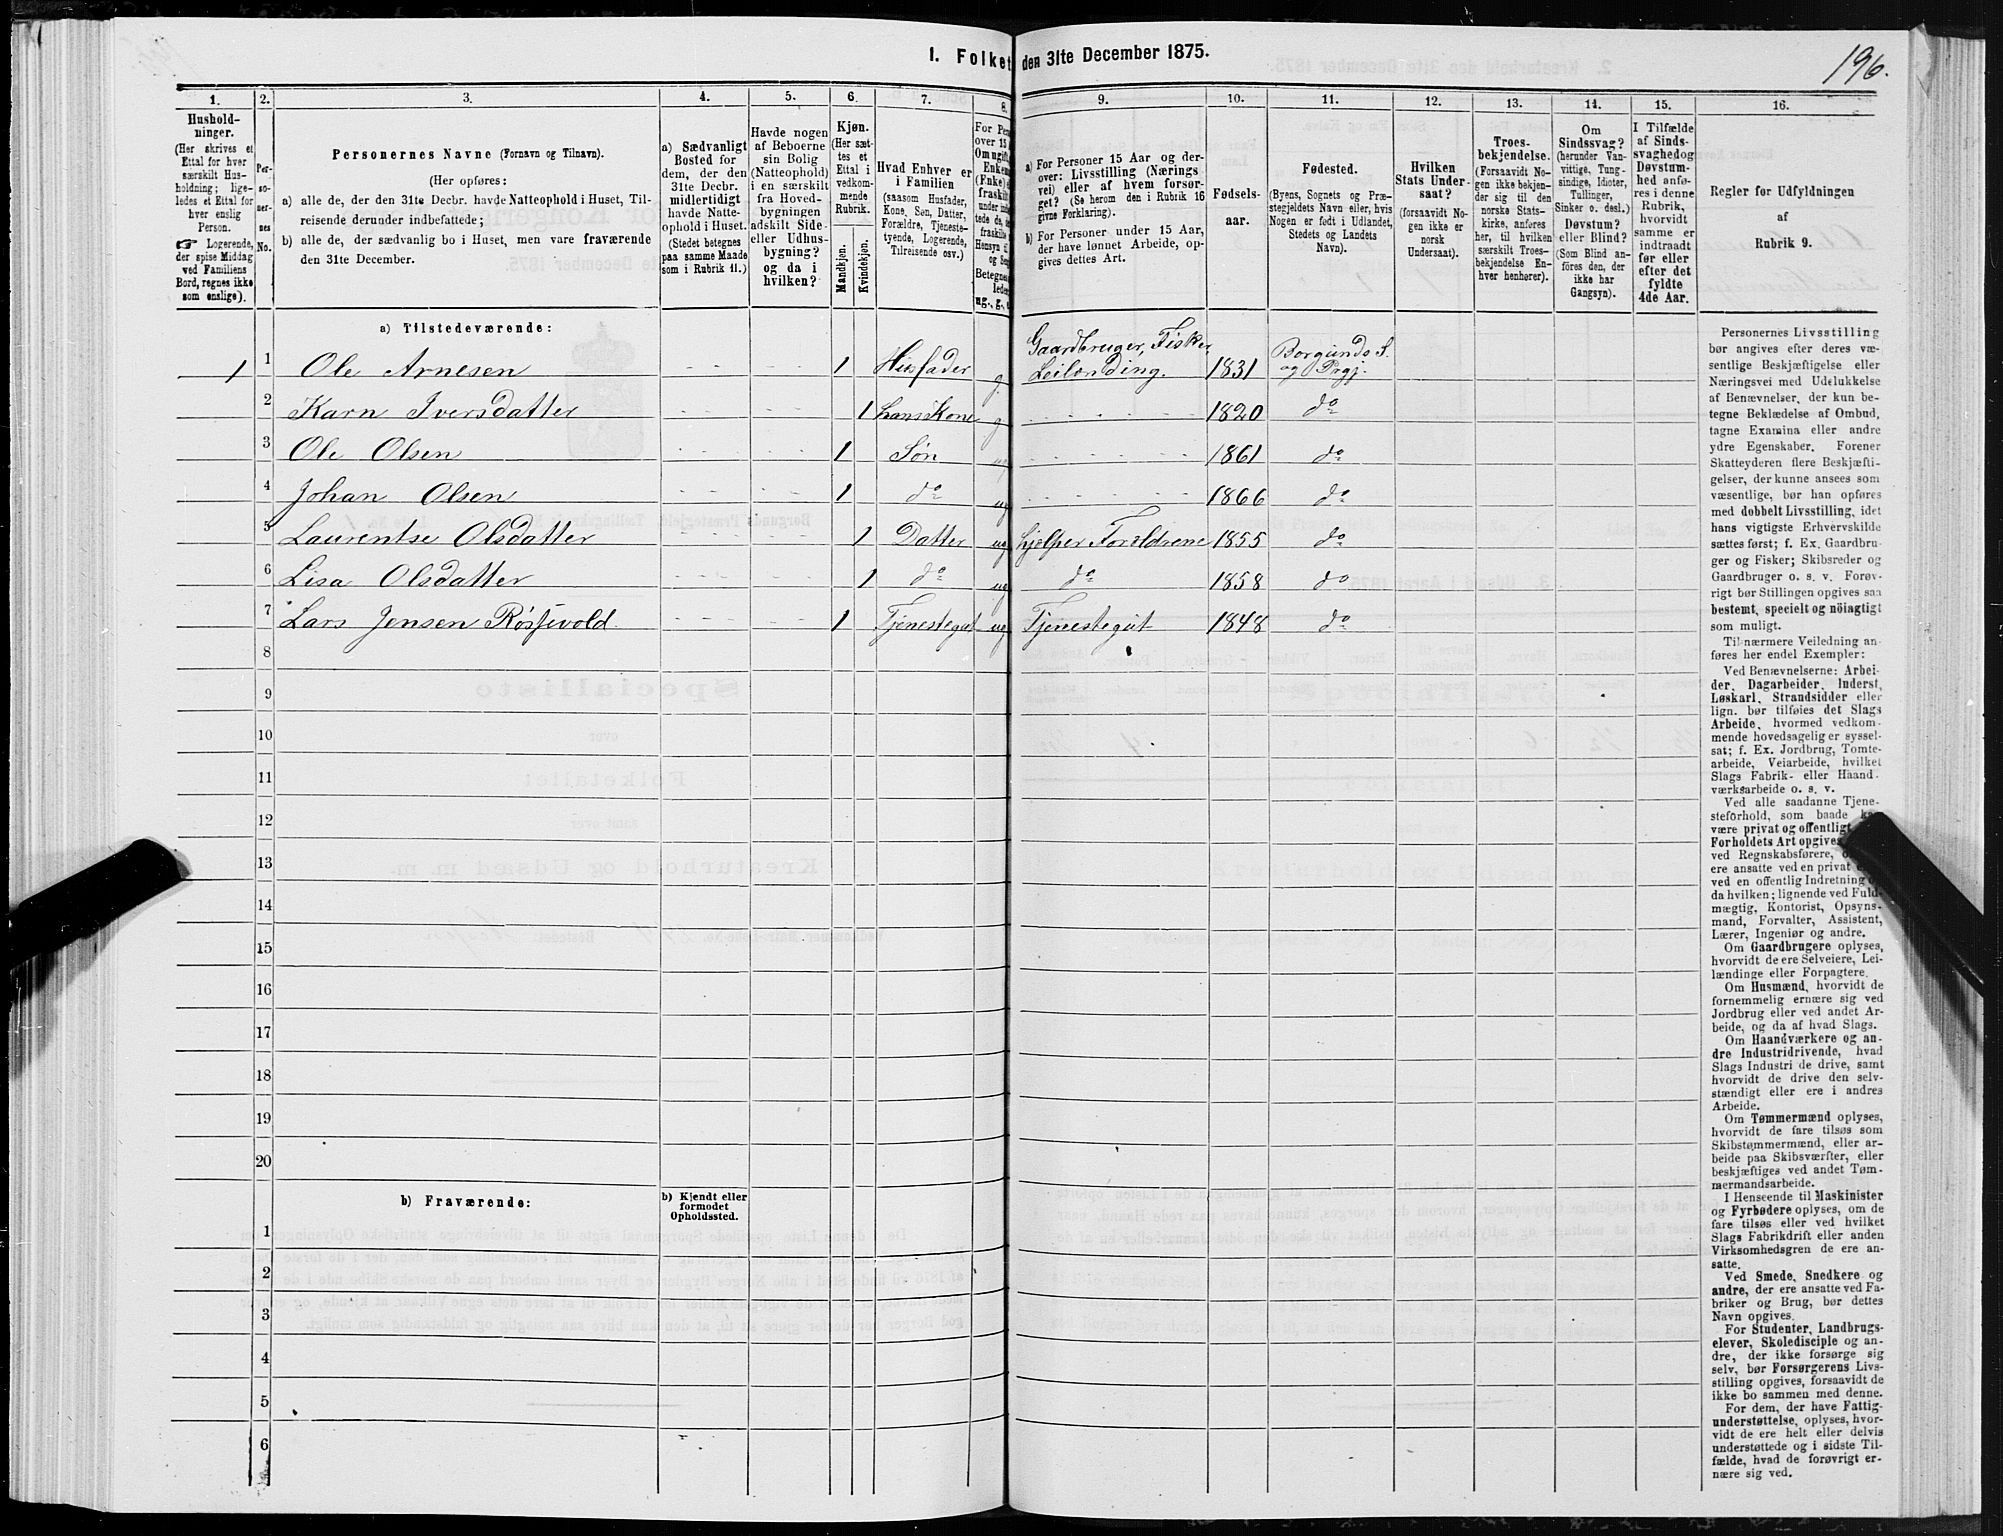 196.
1. Folket
den 31te December 1875.
1. 2. 3. 4. 5. 6. 7. 8. 9. 10. 11. 12. 13. 14. 15. 16.
Hushold-
ninger.
(Her skrives et
Ettal for hver
særskilt Hus-
holdning; lige-
ledes et Ettal for
hver enslig
Person.
☞ Logerende,
der spise Middag
ved Familiens
Bord, regnes ikke
som enslige).
Per-
so-
ner-
nes
No.
Personernes Navne (Fornavn og Tilnavn).
(Her opføres:
a) alle de, der den 31te Decbr. havde Natteophold i Huset, Til-
reisende derunder indbefattede;
b) alle de, der sædvanlig bo i Huset, men vare fraværende
den 31te December.
a) Sædvanligt
Bosted for
dem, der den
31te Decbr.
midlertidigt
havde Natte-
ophold i Huset.
(Stedet betegnes
paa samme Maade
som i Rubrik 11.)
Havde nogen
af Beboerne
sin Bolig
(Natteophold)
i en særskilt
fra Hoved-
bygningen
adskilt Side-
eller Udhus-
bygning?
og da i
hvilken?
Kjøn.
(Her sæt-
tes et
Ettal i
vedkom-
mende
Rubrik.
Mandkjøn.
Kvindekjøn.
Hvad Enhver er
i Familien
(saasom Husfader,
Kone, Søn, Datter,
Forældre, Tjeneste-
tyende, Logerende,
Tilreisende osv.)
For Per
over 15
Om ugift
Enkem
(Enke)
fraskilt
a) For Personer 15 Aar og der-
over: Livsstilling (Nærings
vei) eller af hvem forsør-
get? (Se herom den i Rubrik 16
givne Forklaring).
b) For Personer under 15 Aar,
der have lønnet Arbeide, op-
gives dettes Art.
Fødsels-
aar.
Fødested.
(Byens, Sognets og Præ-
stegjeldets Navn eller, hvis
Nogen er født i Udlandet,
Stedets og Landets
Navn).
Hvilken
Stats Under-
saat?
(forsaavidt No-
gen ikke er
norsk
Undersaat).
Troes-
bekjendelse.
(Forsaavidt No-
gen ikke bekjen-
der sig til den
norske Stats-
kirke, anføres
her, til hvilken
særskilt Troes-
bekjendelse En-
hver henhører).
Om
Sindssvag?
(herunder Van-
vittige, Tung-
sindige, Idioter,
Tullinger,
Sinker o. desl.)
Døvstum?
eller Blind?
(Som Blind an-
føres den, der
ikke har
Gangsyn).
I Tilfælde
af Sinds-
svaghed og
Døvstum-
hed anfø-
res i denne
Rubrik,
hvorvidt
samme er
indtraadt
før eller
efter det
fyldte
4de Aar.
Regler for Udfyldningen
af
Rubrik 9.
a) Tilstedeværende:
Gaardbruger, Fisker,
1 1 Ole Arnesen 1 Husfader g. Leilænding. 1831 Borgunds S. og Prgj.
2 Karn Iversdatter 1 hans Kone g 1820 do
3 Ole Olsen 1 Søn ug 1861 do
4 Johan Olsen 1 do ug 1866 do
5 Laurentse Olsdatter 1 Datter ug hjelper Forældrene 1855 do
6 Lisa Olsdatter 1 do ug do 1858 do
7 Lars Jensen 1 Tjenestegut ug Tjenestegut 1848 do
8
9
10
11
12
13
14
15
16
17
18
19
20
b) Fraværende:
b) Kjendt eller
formodet
Opholdssted.
1
2
3
4
5
6
Personernes Livsstilling
bør angives efter deres væ-
sentlige Beskjæftigelse eller
Næringsvei med Udelukkelse
af Benævnelser, der kun be-
tegne Beklædelse af Ombud,
tagne Examina eller andre
ydre Egenskaber. Forener
Skatteyderen flere Beskjæfti-
gelser, der kunne ansees som
væsentlige, bør han opføres
med dobbelt Livsstilling, idet
hans vigtigste Erhvervskilde
sættes først; f. Ex. Gaardbru-
ger og Fisker; Skibsreder og
Gaardbruger o. s. v. Forøv-
rigt bør Stillingen opgives saa
bestemt, specielt og nöiagtigt
som muligt.
Til nærmere Veiledning an-
føres her endel Exempler:
Ved Benævnelserne: Arbei-
der, Dagarbeider, Inderst,
Løskarl, Strandsidder eller
lign. bør tilføies det Slags
Arbeide, hvormed vedkom-
mende hovedsagelig er syssel-
sat; f. Ex. Jordbrug, Tomte-
arbeide, Veiarbeide, hvilket
Slags Fabrik- eller Haand-
værksarbeide o. s. v.
Ved alle saadanne Tjene-
steforhold, som baade
være privat og offentligt
Forholdets Art opgives
ved Regnskabsførere,
ere ansatte ved en privat
ved en offentlig Indretning
da hvilken; lignende ved Fuld-
mægtig, Kontorist, Opsyns-
mand, Forvalter, Assistent,
Lærer, Ingeniør og andre.
Om Gaardbrugere oplyses,
hvorvidt de ere Selveiere, Lei-
lændinge eller Forpagtere.
Om Husmænd, hvorvidt de
fornemmelig ernære sig ved
Jordbrug eller ved andet Ar-
beide, og da af hvad Slags.
Om Haandværkere og an-
dre Industridrivende, hvad
Slags Industri de drive, samt
hvorvidt de drive den selv-
stændigt eller ere i andres
Arbeide.
Om Tømmermænd oplyses,
hvorvidt de fare tilsøs som
Skibstømmermænd, eller ar-
beide paa Skibsværfter, eller
beskjæftiges ved andet Tøm-
mermandsarbeide.
I Henseende til Maskinister
og Fyrbødere oplyses, om de
fare tilsøs eller ved hvilket
Slags Fabrikdrift eller anden
Virksomhedsgren de ere an-
satte.
Ved Smede, Snedkere og
andre, der ere ansatte ved Fa-
briker og Brug, bør dettes
Navn opgives.
For Studenter, Landbrugs-
elever, Skoledisciple og an-
dre, der ikke forsørge sig
selv, bør Forsørgerens Livs-
stilling opgives, forsaavidt de
ikke bo sammen med denne.
For dem, der have Fattig-
understøttelse, oplyses, hvor-
vidt de ere helt eller delvis
understøttede og i sidste Til-
fælde, hvad de forøvrigt er-
nære sig ved.